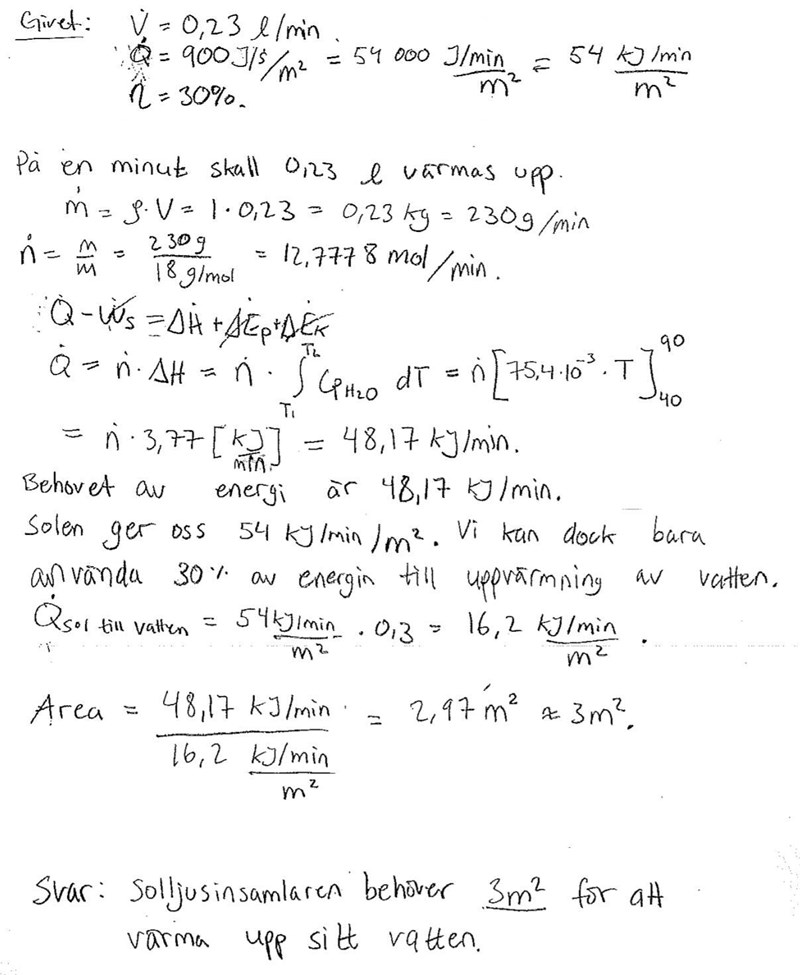 Givet: V̇ = 0,23 l/min.
Q̇ = 900 J/s/m² = 54 000 J/min/m² = 54 kJ/min/m²
η = 30%.
På en minut skall 0,23 l värmas upp.
ṁ = ρ·V = 1·0,23 = 0,23 kg = 230g/min
ṅ = m/M = 230g/18g/mol = 12,7778 mol/min.
Q̇ - Ẇs = ΔḢ + ΔĖp + ΔĖk
Q̇ = ṅ·ΔH = ṅ · ∫T₁T₂ CpH2O dT = ṅ[75,4·10⁻³·T]₄₀⁹⁰
= ṅ·3,77 [kJ/min] = 48,17 kJ/min.
Behovet av energi är 48,17 kJ/min.
Solen ger oss 54 kJ/min/m². Vi kan dock bara
använda 30% av energin till uppvärmning av vatten.
Q̇sol till vatten = 54 kJ/min/m² · 0,3 = 16,2 kJ/min/m².
Area = 48,17 kJ/min / 16,2 kJ/min/m² = 2,97 m² ≈ 3m².
Svar: Solljusinsamlaren behöver 3m² för att
värma upp sitt vatten.